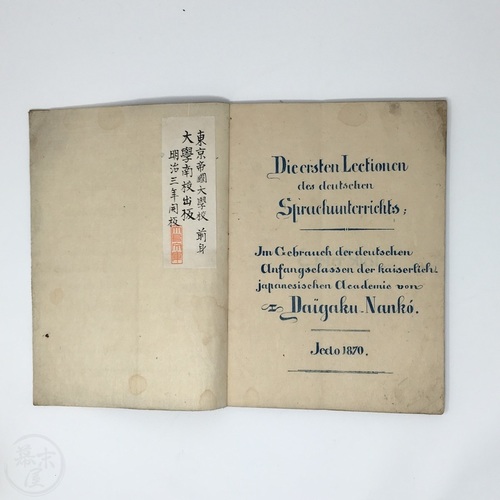 東京帝國大學校 前身
大學南校出板
明治三年開板
Die ersten Lectionen
des deutschen
Sprachunterrichts;
Im Gebrauch der deutschen
Anfangsclassen der kaiserlich-
japanesischen Academie von
Daïgaku-Nankó.
Jedo 1870.